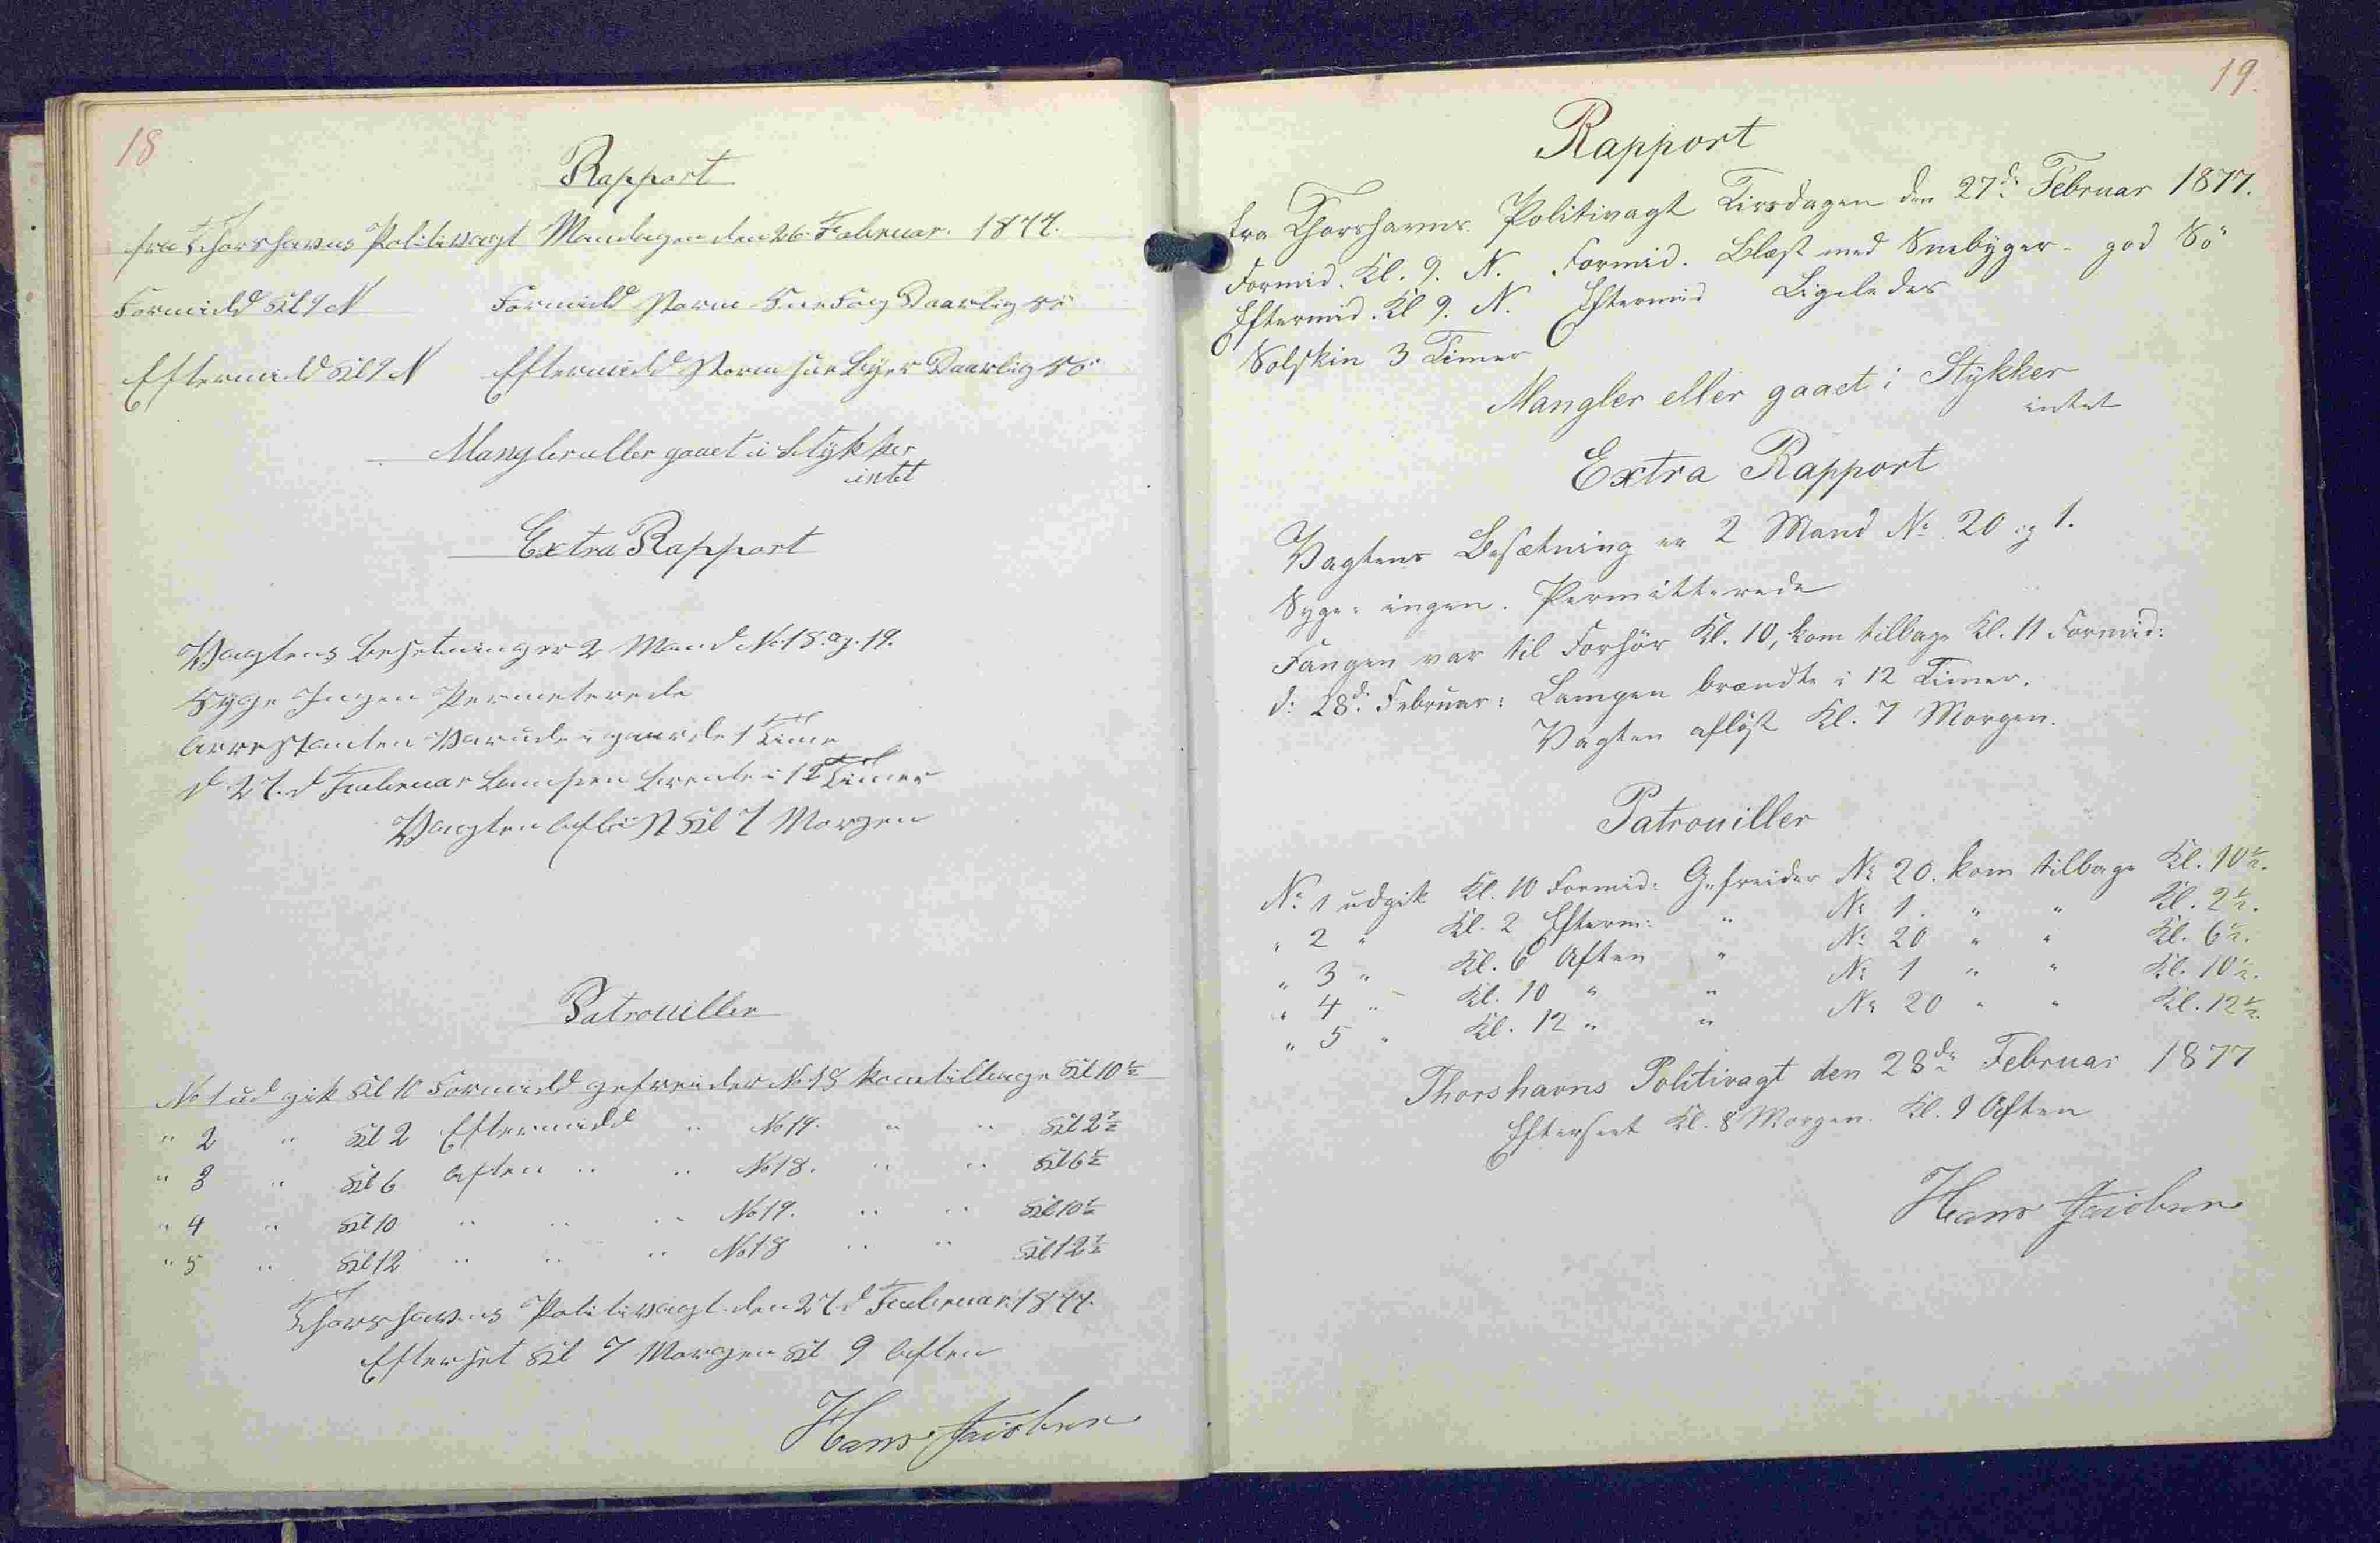 18
Rapport
fra Thorshavns Politivagt Mandagen den 26. Februar. 1877.
Formidd Kl 9 N Formidd Storm Snefog Daarlig Sö
Eftermidd Kl 9 N Eftermidd Storm Snebyer Daarlig Sö
Mangler eller gaaet i Stykker
intet
Extra Rapport
Vagtens Besetning er 2 Mand No 18. og. 19.
Syge Ingen Permeterede
Arrestanten Var ude i gaarde 1 Time
d 27.d Februar Lampen brente i 12 Timer
Vagten Aflöst Kl 7 Morgen
Patrouiller
No 1 ud gik Kl 10 Formidd gefreider No 18 kom tilbage Kl 10 1/2
" 2 " Kl 2 Eftermidd " No 19. " " Kl 2 1/2
" 3 " Kl 6 Aften " " No 18. " " Kl 6 1/2
" 4 " Kl 10 " " " No 19. " " Kl 10 1/2
" 5 " Kl 12 " " " No 18 " " Kl 12 1/2
Thorshavns Politivagt den 27.d Februar 1877.
Efterset Kl 7 Morgen Kl 9 Aften
Hans Jacobsen
19.
Rapport
fra Thorshavns Politivagt Tirsdagen den 27de Februar 1877.
Formid. Kl. 9. N. Formid. Blæst med Snebyger - god Sö
Eftermid. Kl 9. N. Eftermid Ligeledes
Solskin 3 Timer
Mangler eller gaaet i Stykker
intet
Extra Rapport
Vagtens Besætning er 2 Mand No 20 og 1.
Syge: ingen. Permitterede
Fangen var til Forhör Kl. 10, kom tilbage Kl. 11 Formid:
d: 28d. Februar: Lampen brændte i 12 Timer.
Vagten aflöst Kl. 7 Morgen.
Patrouiller
No 1 udgik Kl. 10 Formid: Gefreider No 20. kom tilbage Kl. 10 1/2.
" 2 " Kl. 2 Efterm: " No 1. " " Kl. 2 1/2.
" 3 " Kl. 6 Aften " No 20 " " Kl. 6 1/2.
" 4 " Kl. 10 " " No 1 " " Kl. 10 1/2.
" 5 " Kl. 12 " " No 20 " " Kl. 12 1/2.
Thorshavns Politivagt den 28de Februar 1877
Efterseet Kl. 8 Morgen. Kl. 9 Aften
Hans Jacobsen